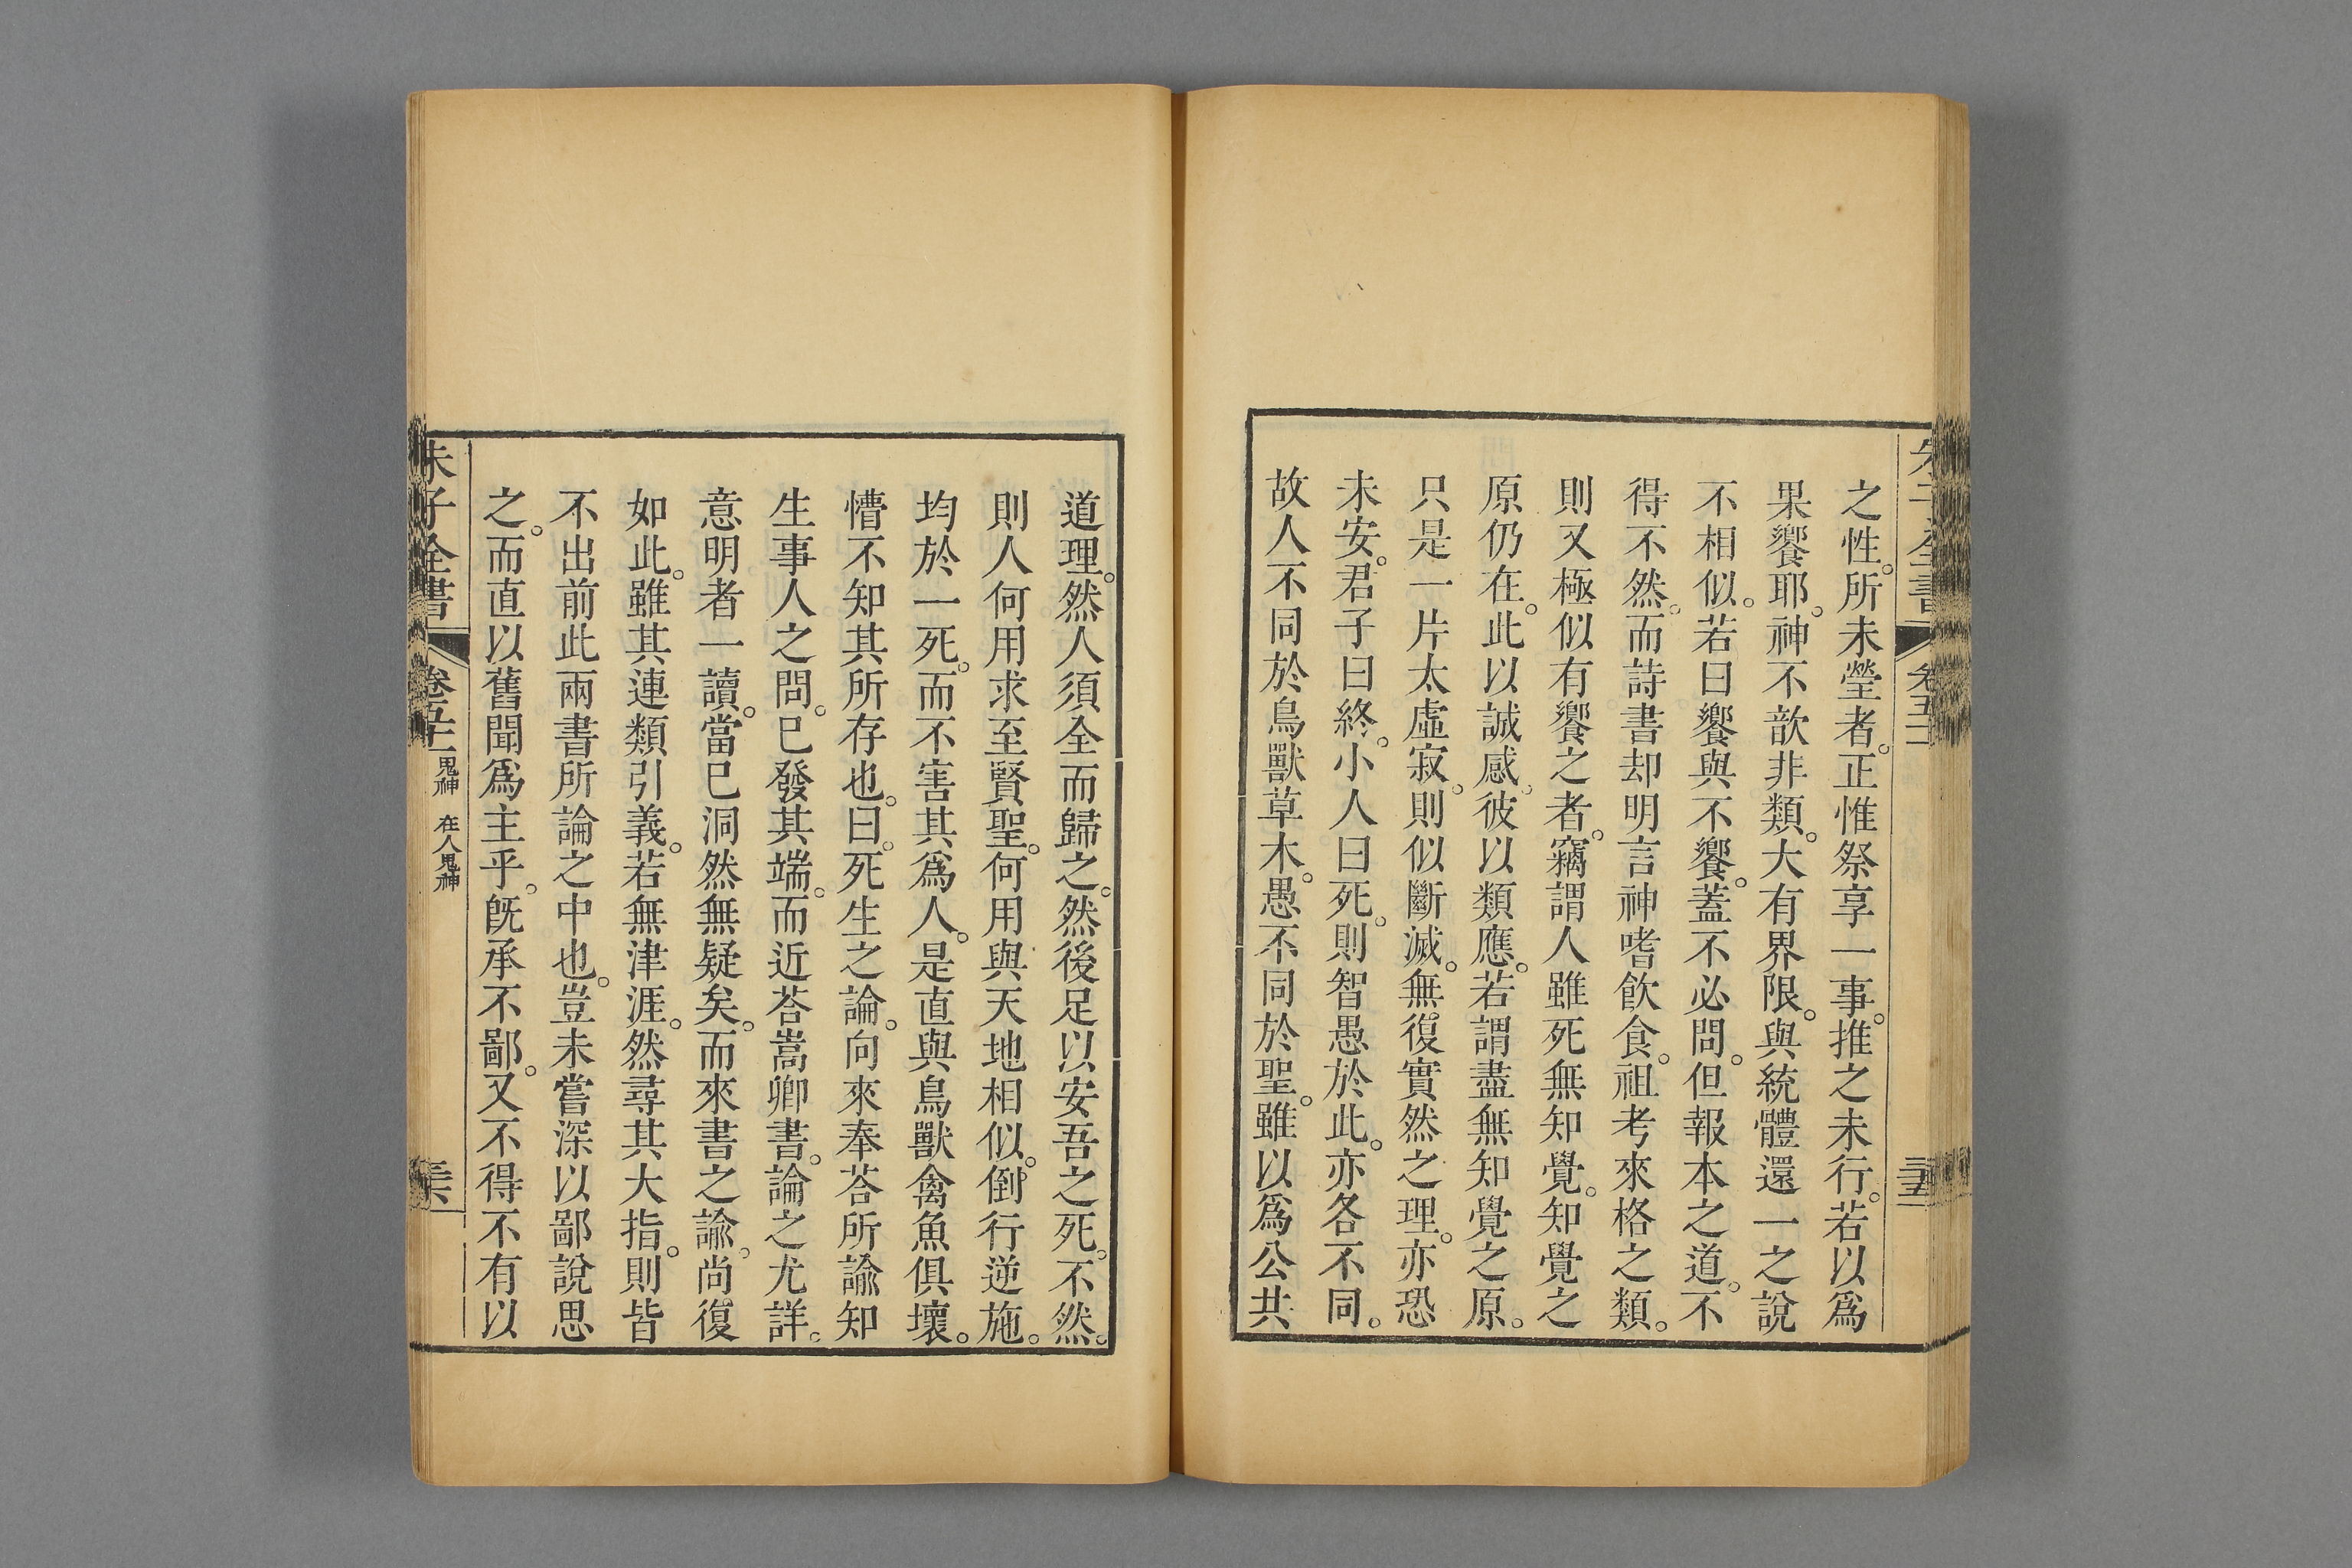 之性。所未瑩者。正惟祭享一事。推之未行。若以爲
果饗耶。神不歆非類。大有界限。與統體還一之說
不相似。若曰饗與不饗。蓋不必問。但報本之道。不
得不然。而詩書却明言神嗜飲食。祖考來格之類。
則又極似有饗之者。竊謂人雖死無知覺。知覺之
原仍在。此以誠感。彼以類應。若謂盡無知覺之原。
只是一片太虛寂。則似斷滅。無復實然之理。亦恐
未安。君子曰終。小人曰死。則智愚於此。亦各不同。
故人不同於鳥獸草木。愚不同於聖。雖以爲公共
道理。然人須全而歸之。然後足以安吾之死。不然。
則人何用求至賢聖。何用與天地相似。倒行逆施。
均於一死。而不害其爲人。是直與鳥獸禽魚俱壞。
懵不知其所存也。曰。死生之論。向來奉荅所諭知
生事人之問。已發其端。而近荅嵩卿書。論之尤詳。
意明者一讀。當已洞然無疑矣。而來書之諭。尚復
如此。雖其連類引義。若無津涯。然尋其大指。則皆
不出前此兩書所論之中也。豈未嘗深以鄙說思
之。而直以舊聞爲主乎。旣承不鄙。又不得不有以
朱子全書
卷五十一
鬼神 在人鬼神